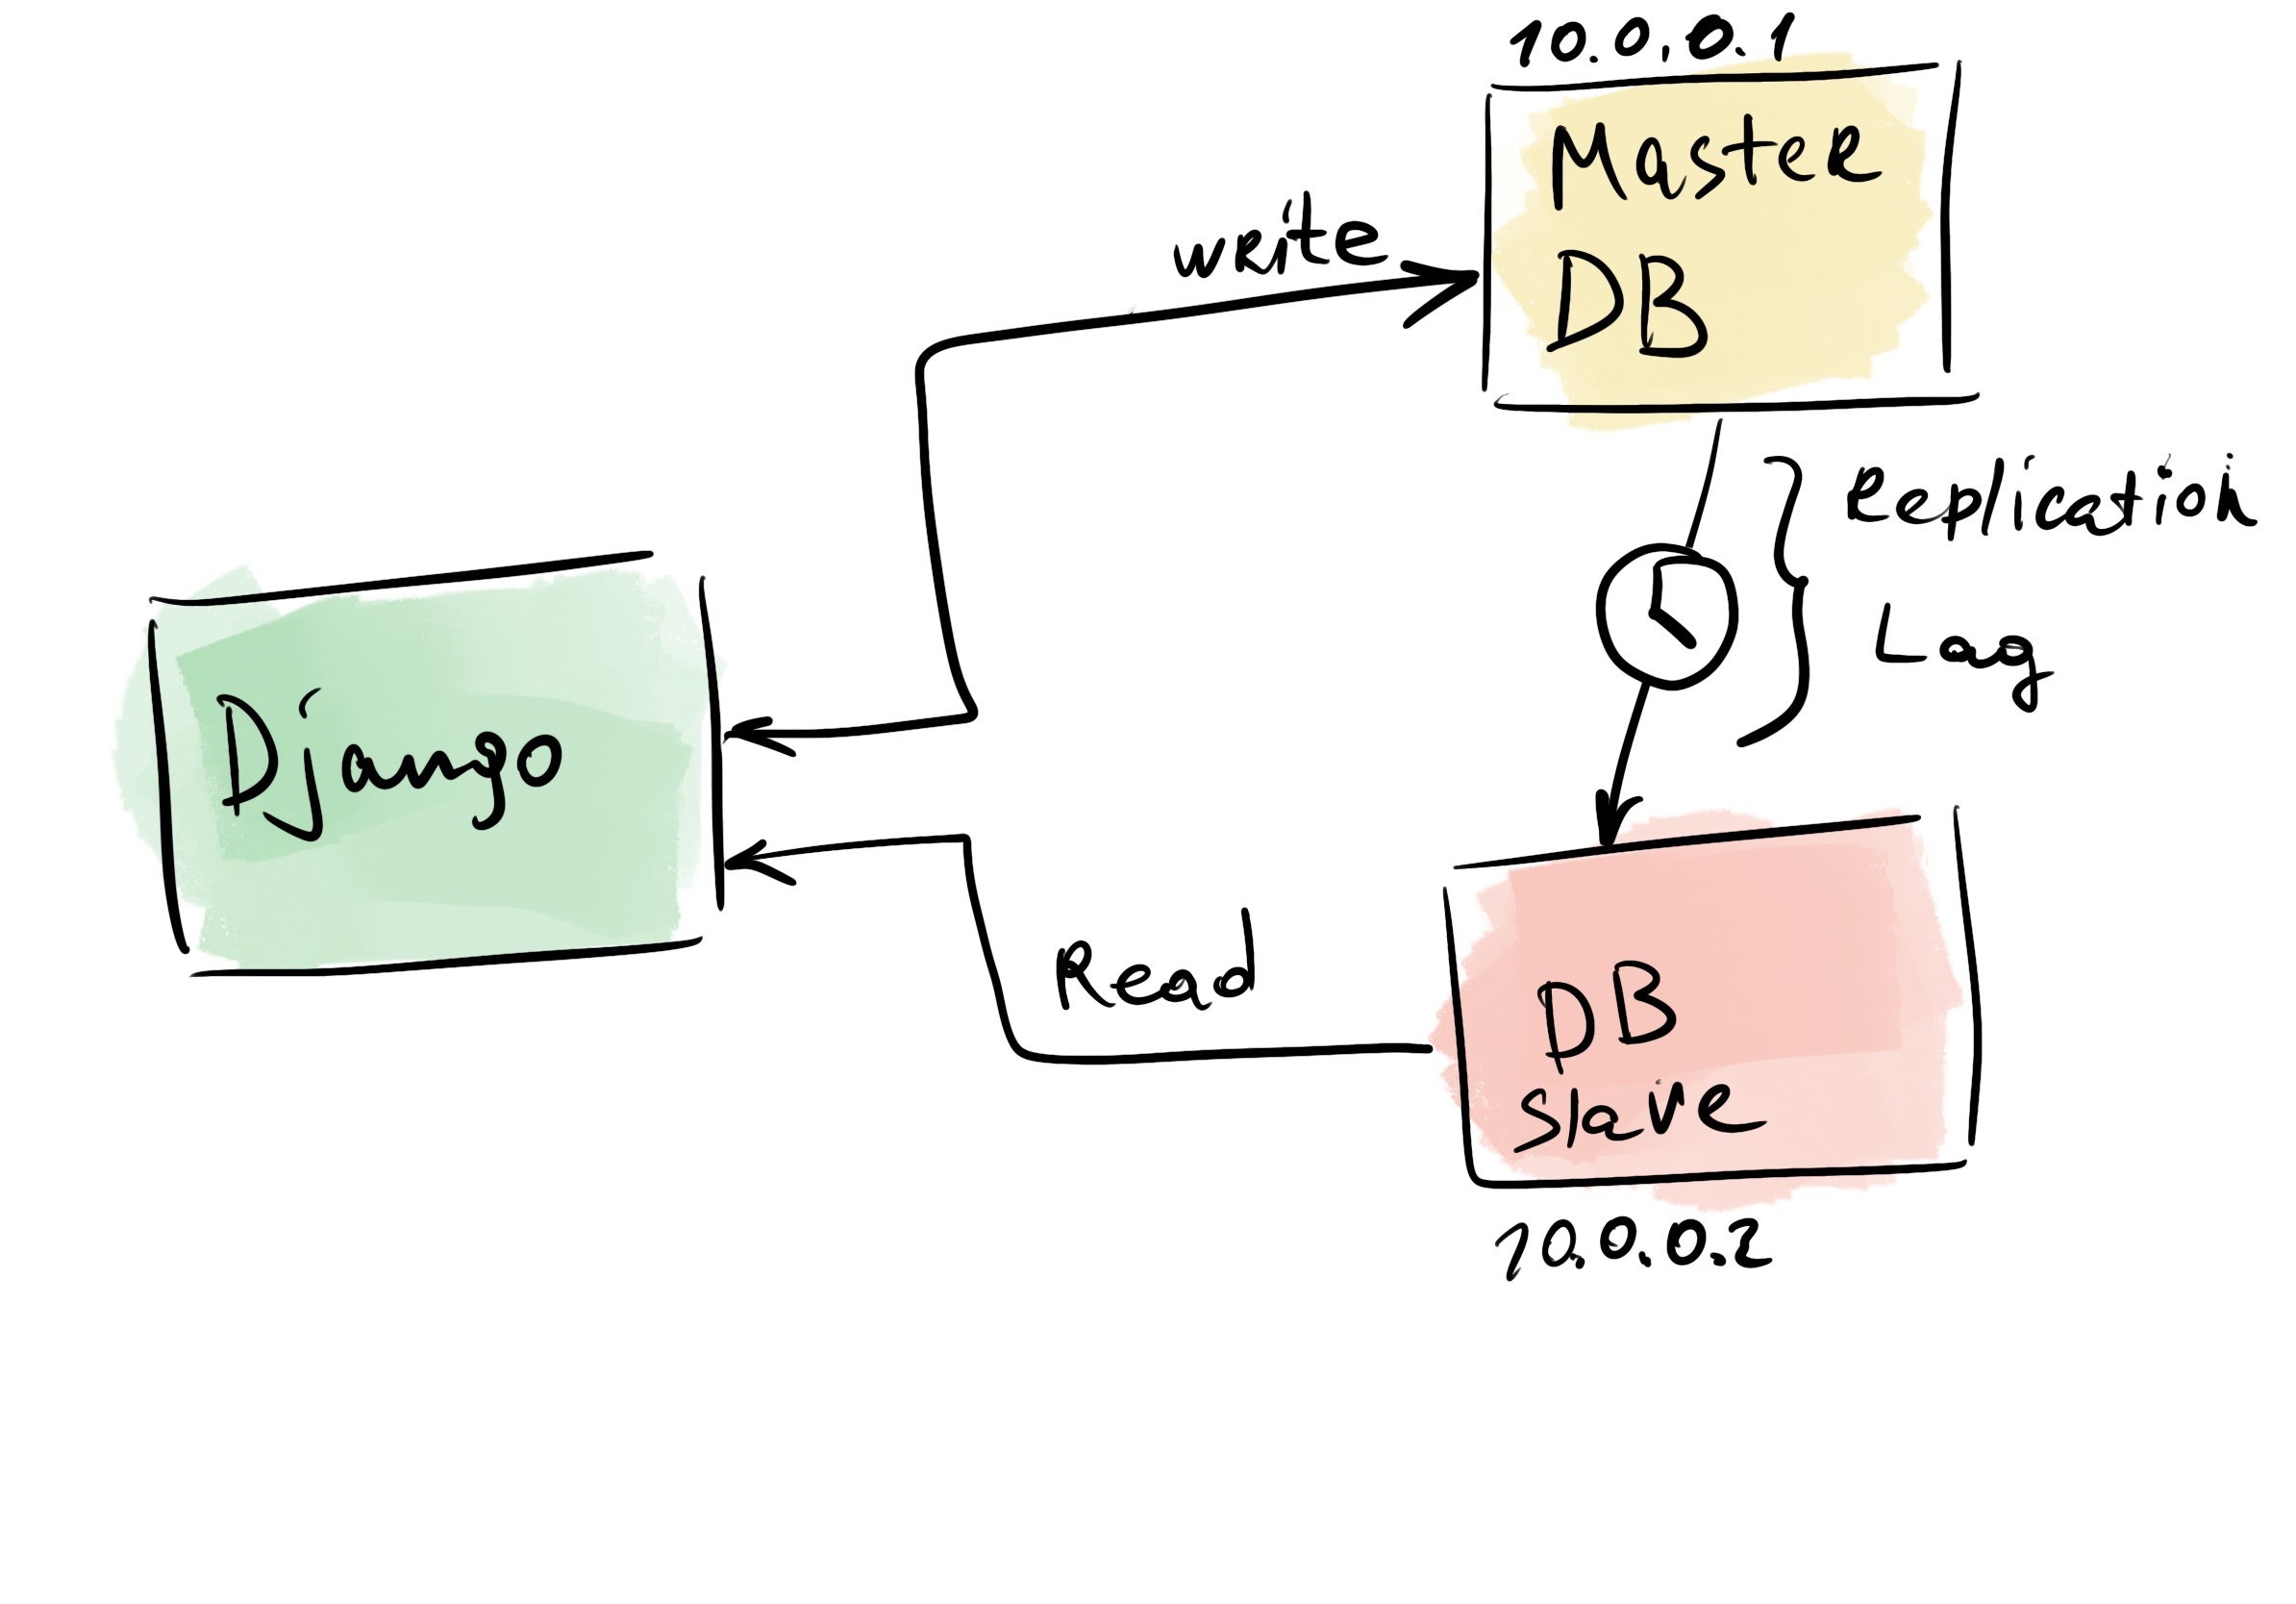 10.0.0.1
Master
DB
write
Replication
Lag
Django
Read
DB
slave
10.0.0.2